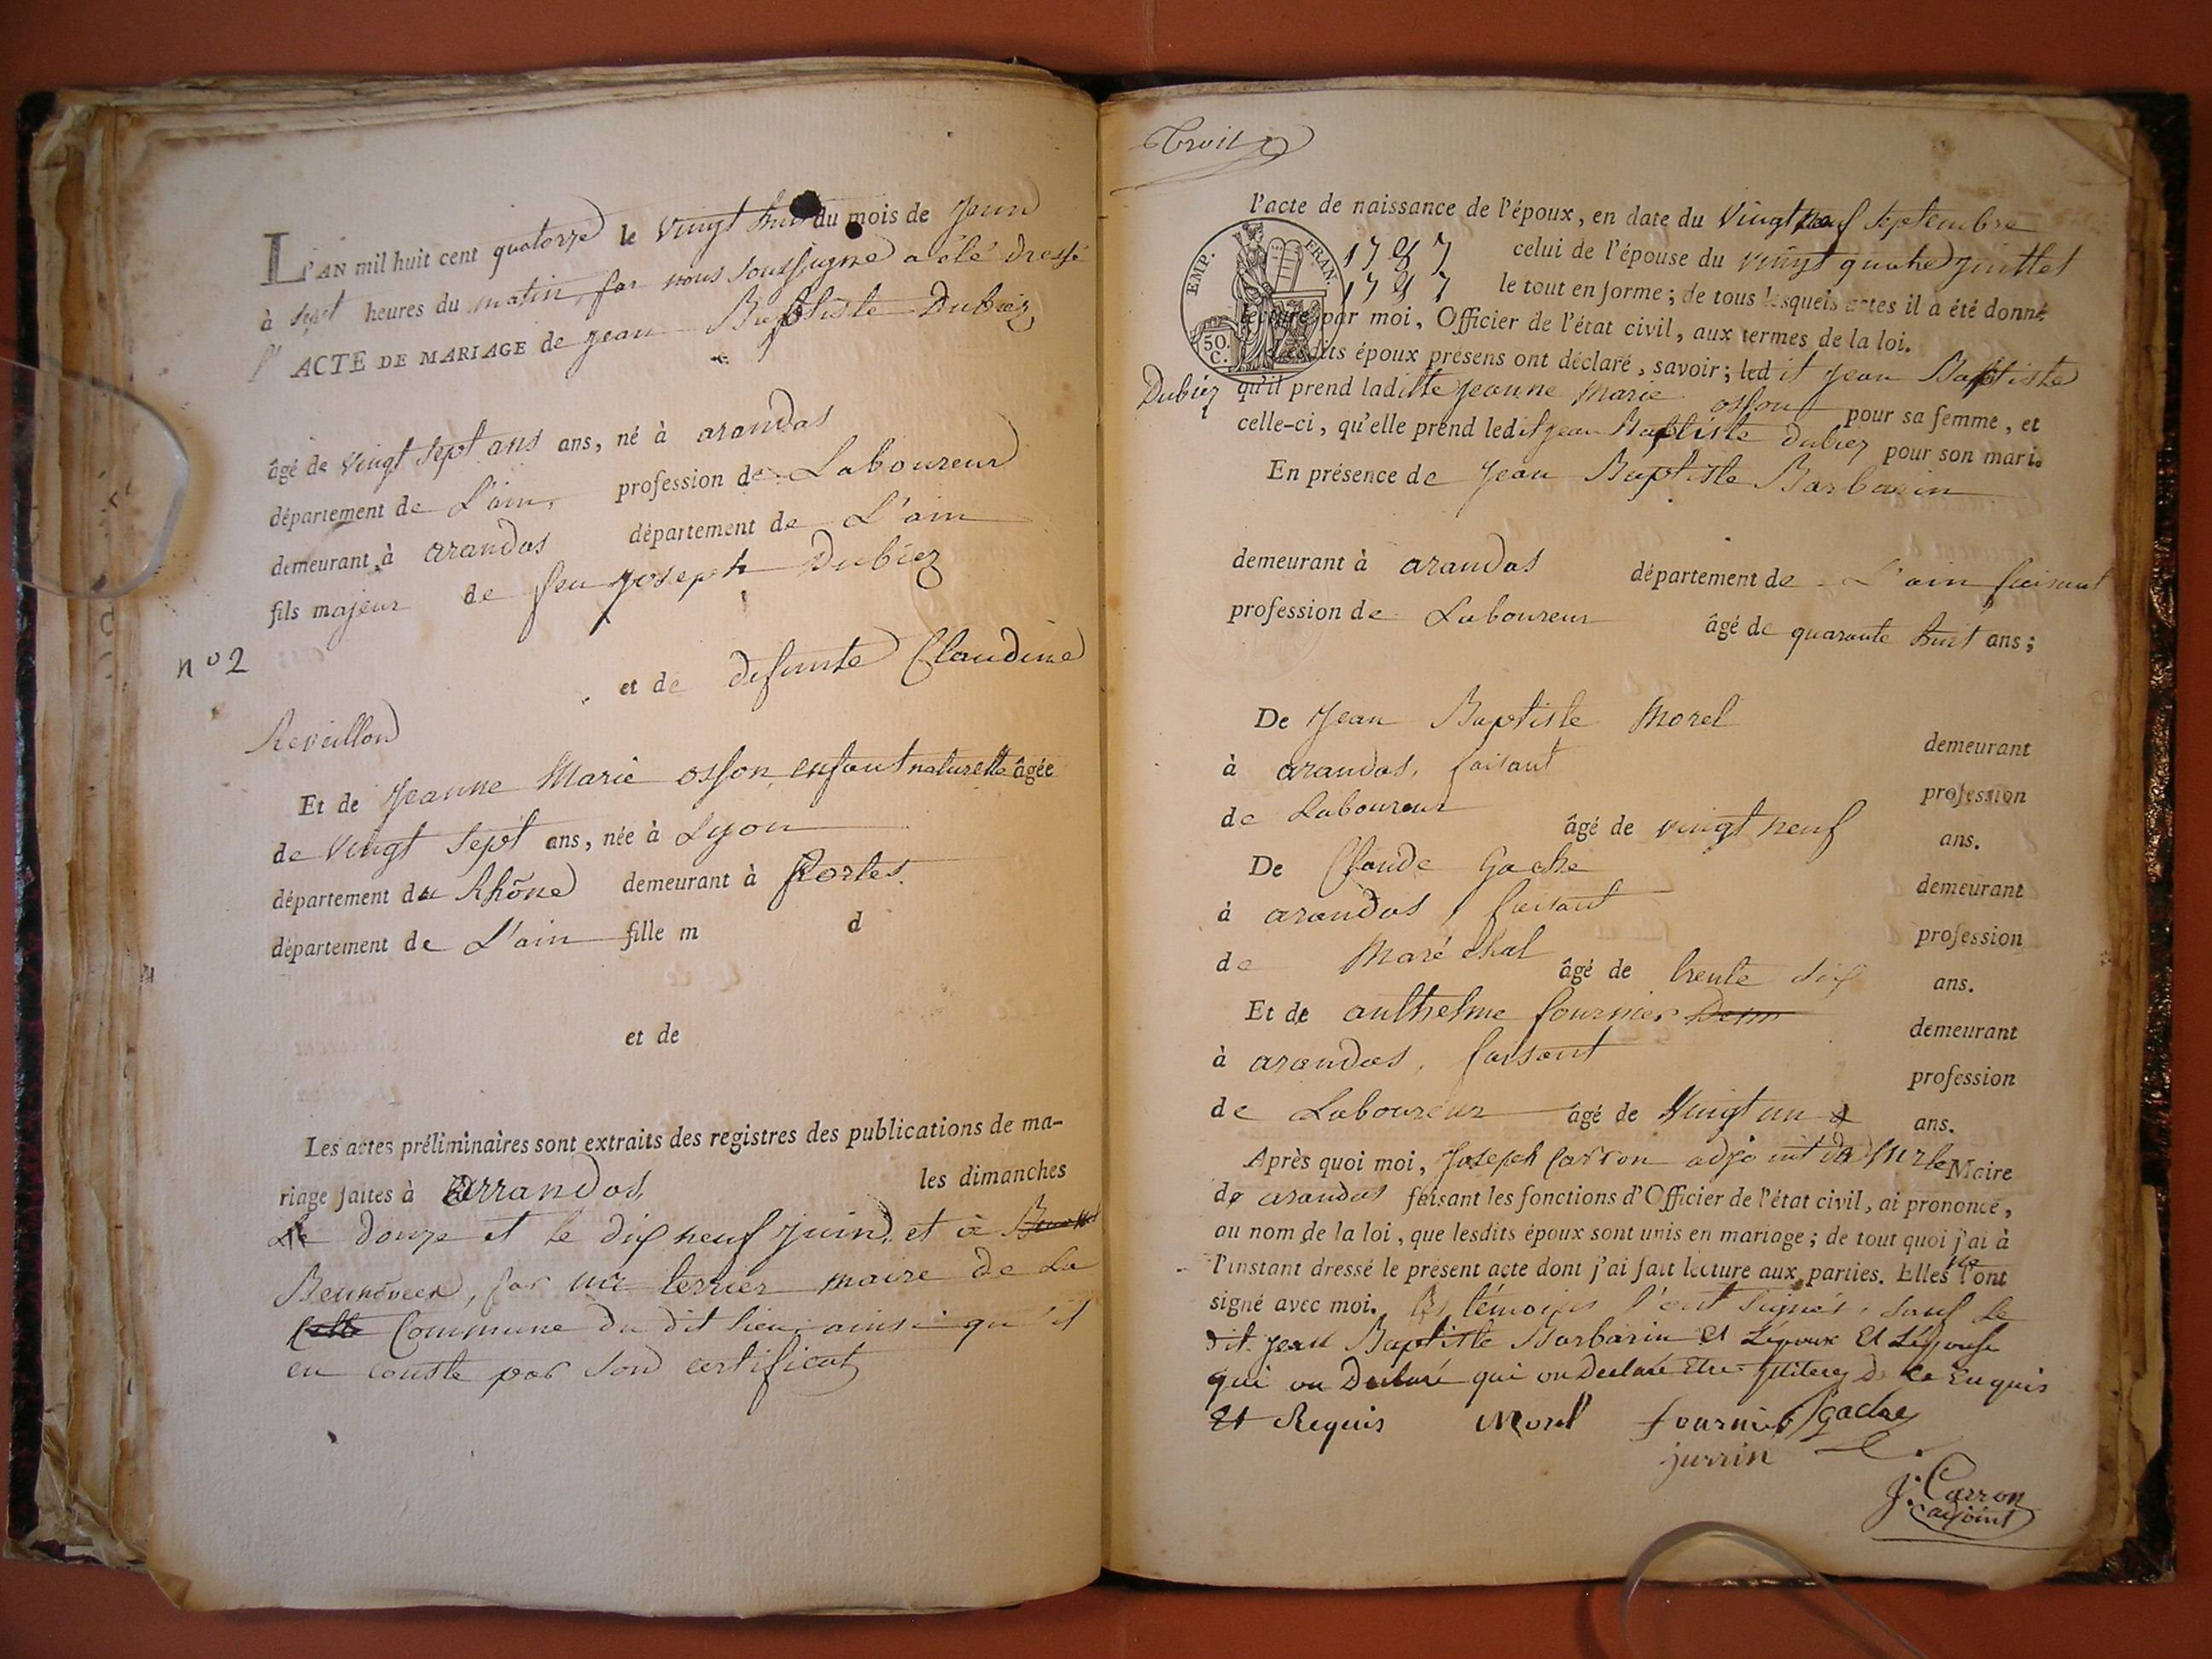 L'AN mil huit cent quatorze le vingt huit du mois de Juin
à sept heures du matin, par nous soussigné a été dressé
l' ACTE DE MARIAGE de jean Baptiste Dubiez
âgé de vingt sept ans ans, né à arandas
département de L'ain, profession de Laboureur
demeurant à arandas département de L'ain
fils majeur de feu Joseph Dubiez
n° 2
et de defunte Claudine
Reveillon
Et de Jeanne Marie osson enfant naturelle âgée
de vingt sept ans, née à Lyon
département du Rhône demeurant à
département de L'ain fille m d
et de
Les actes préliminaires sont extraits des registres des publications de ma-
riage faites à Arrandas les dimanches
Le douze et le dix neuf juin, et à
par terrier maire de La
Cette Commune du dit lieu, ainsi qu'il
en conste par son certificat
Trois
l'acte de naissance de l'époux, en date du vingt neuf septembre
1787 celui de l'épouse du vingt quatre juillet
1787 le tout en forme ; de tous lesquels actes il a été donné
EMP. FRAN. 50. C.
lecture par moi, Officier de l'état civil, aux termes de la loi.
Lesdits époux présens ont déclaré, savoir ; ledit Jean Baptiste
Dubiez qu'il prend laditte Jeanne Marie osson pour sa femme, et
celle-ci, qu'elle prend ledit jean Baptiste dubiez pour son mari.
En présence de Jean Baptiste Barbarin
demeurant à arandas département de L'ain faisant
profession de Laboureur âgé de quarante huit ans ;
De Jean Baptiste Morel demeurant
à arandas, faisant profession
de Laboureur âgé de vingt neuf ans.
De Claude Gache demeurant
à arandas, faisant profession
de Maréchal âgé de trente six ans.
Et de anthelme fournier demeurant
à arandas, faisant profession
de Laboureur âgé de vingt un ans.
Après quoi moi, Joseph Carron adjoint Maire
de arandas faisant les fonctions d'Officier de l'état civil, ai prononcé,
au nom de la loi, que lesdits époux sont unis en mariage ; de tout quoi j'ai à
l'instant dressé le présent acte dont j'ai fait lecture aux parties. Elles l'ont
signé avec moi. les témoins l'ont signés, sauf le
dit Jean Baptiste Barbarin et L'époux Et L'épouse
qui on Declaré qui on Declaré Etre de ce Enquis
Et Requis Morel fournier gache
jurrin
J. Carron
adjoint